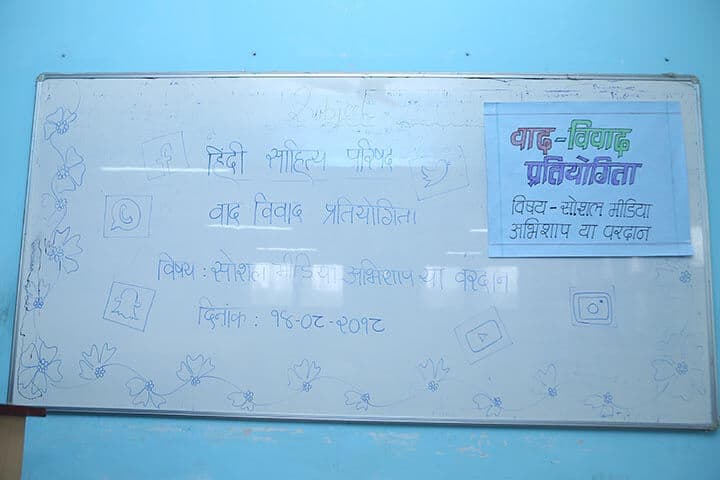 हिंदी साहित्य परिषद
वाद विवाद प्रतियोगिता
विषय : सोशल मीडिया अभिशाप या वरदान
दिनांक : १४-०८-२०१८
वाद-विवाद
प्रतियोगिता
विषय - सोशल मीडिया
अभिशाप या वरदान